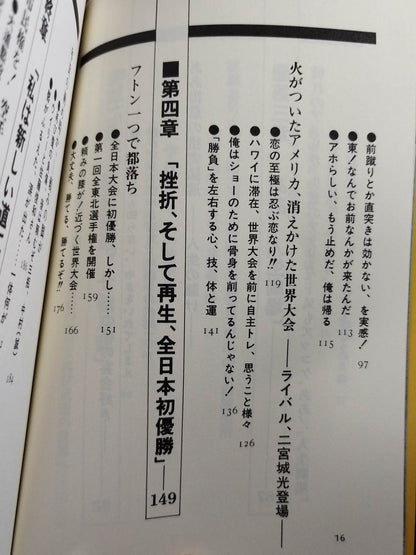 ●前蹴りとか直突きは効かない、を実感！ 97
●東！なんでお前なんかが来たんだ 113
●アホらしい、もう止めだ、俺は帰る 115
火がついたアメリカ、消えかけた世界大会――ライバル、二宮城光登場――
●恋の至極は忍ぶ恋なり!! 119
●ハワイに滞在、世界大会を前に自主トレ、思うこと様々 126
●俺はショーのために骨身を削ってるんじゃない！ 136
●「勝負」を左右する心、技、体と運 141
■第四章 「挫折、そして再生、全日本初優勝」――149
フトン一つで都落ち
●全日本大会に初優勝、しかし…… 151
●第一回全東北選手権を開催 159
●頼みの膝が！近づく世界大会…… 166
●大丈夫、勝てる、勝てるぞ!! 176
16